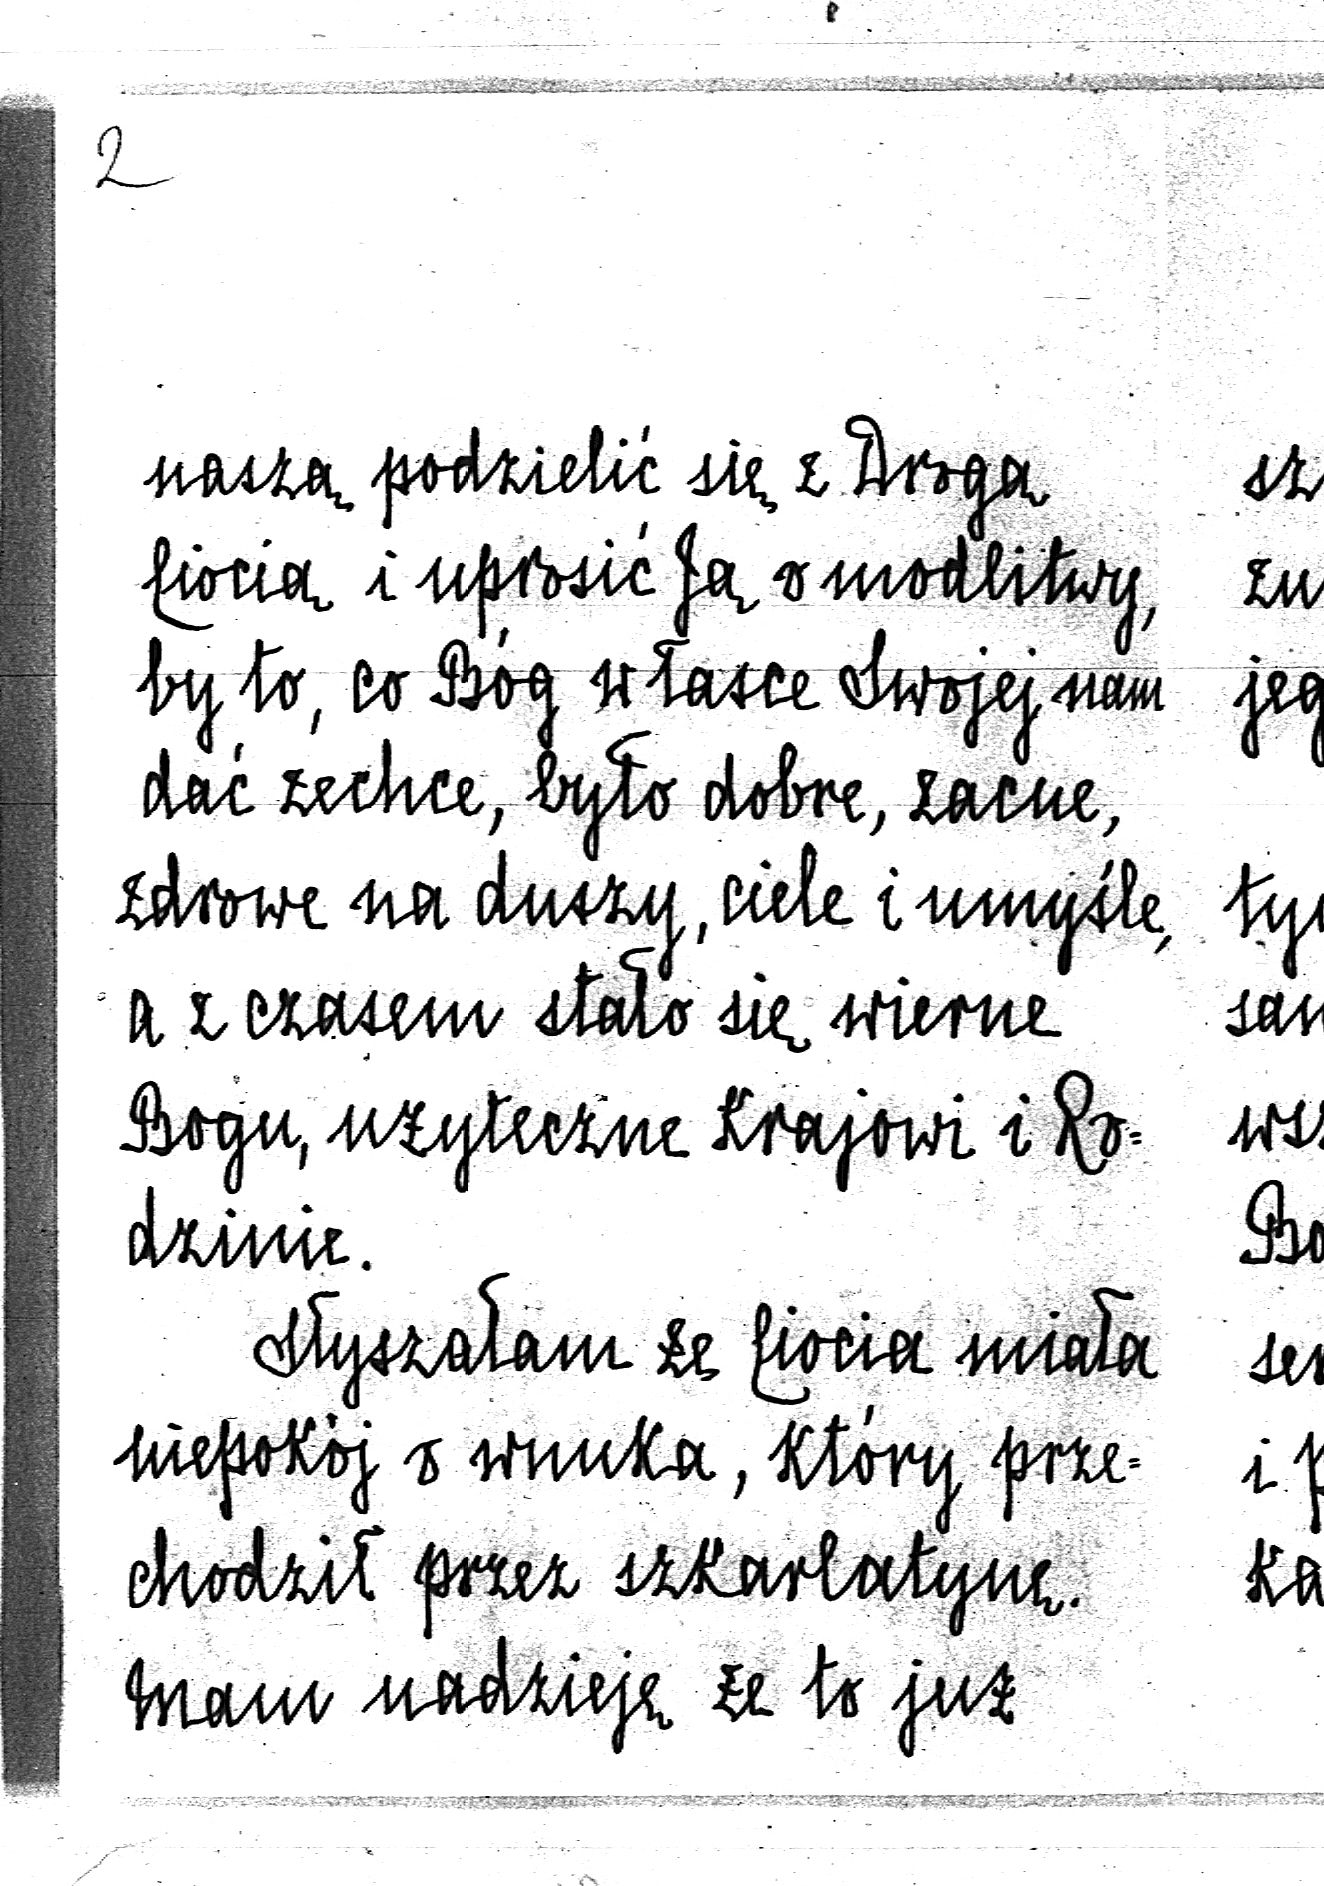 2
naszą podzielić się z Drogą
Ciocią i uprosić Ją o modlitwy,
by to, co Bóg w łasce Swojej nam
dać zechce, było dobre, zacne,
zdrowe na duszy, ciele i umyśle,
a z czasem stało się wierne
Bogu, użyteczne Krajowi i Ro=
dzinie.
Słyszałam żę Ciocia miała
niepokój o wnuka, który prze=
chodził przez szkarlatynę.
Mam nadzieję że to już